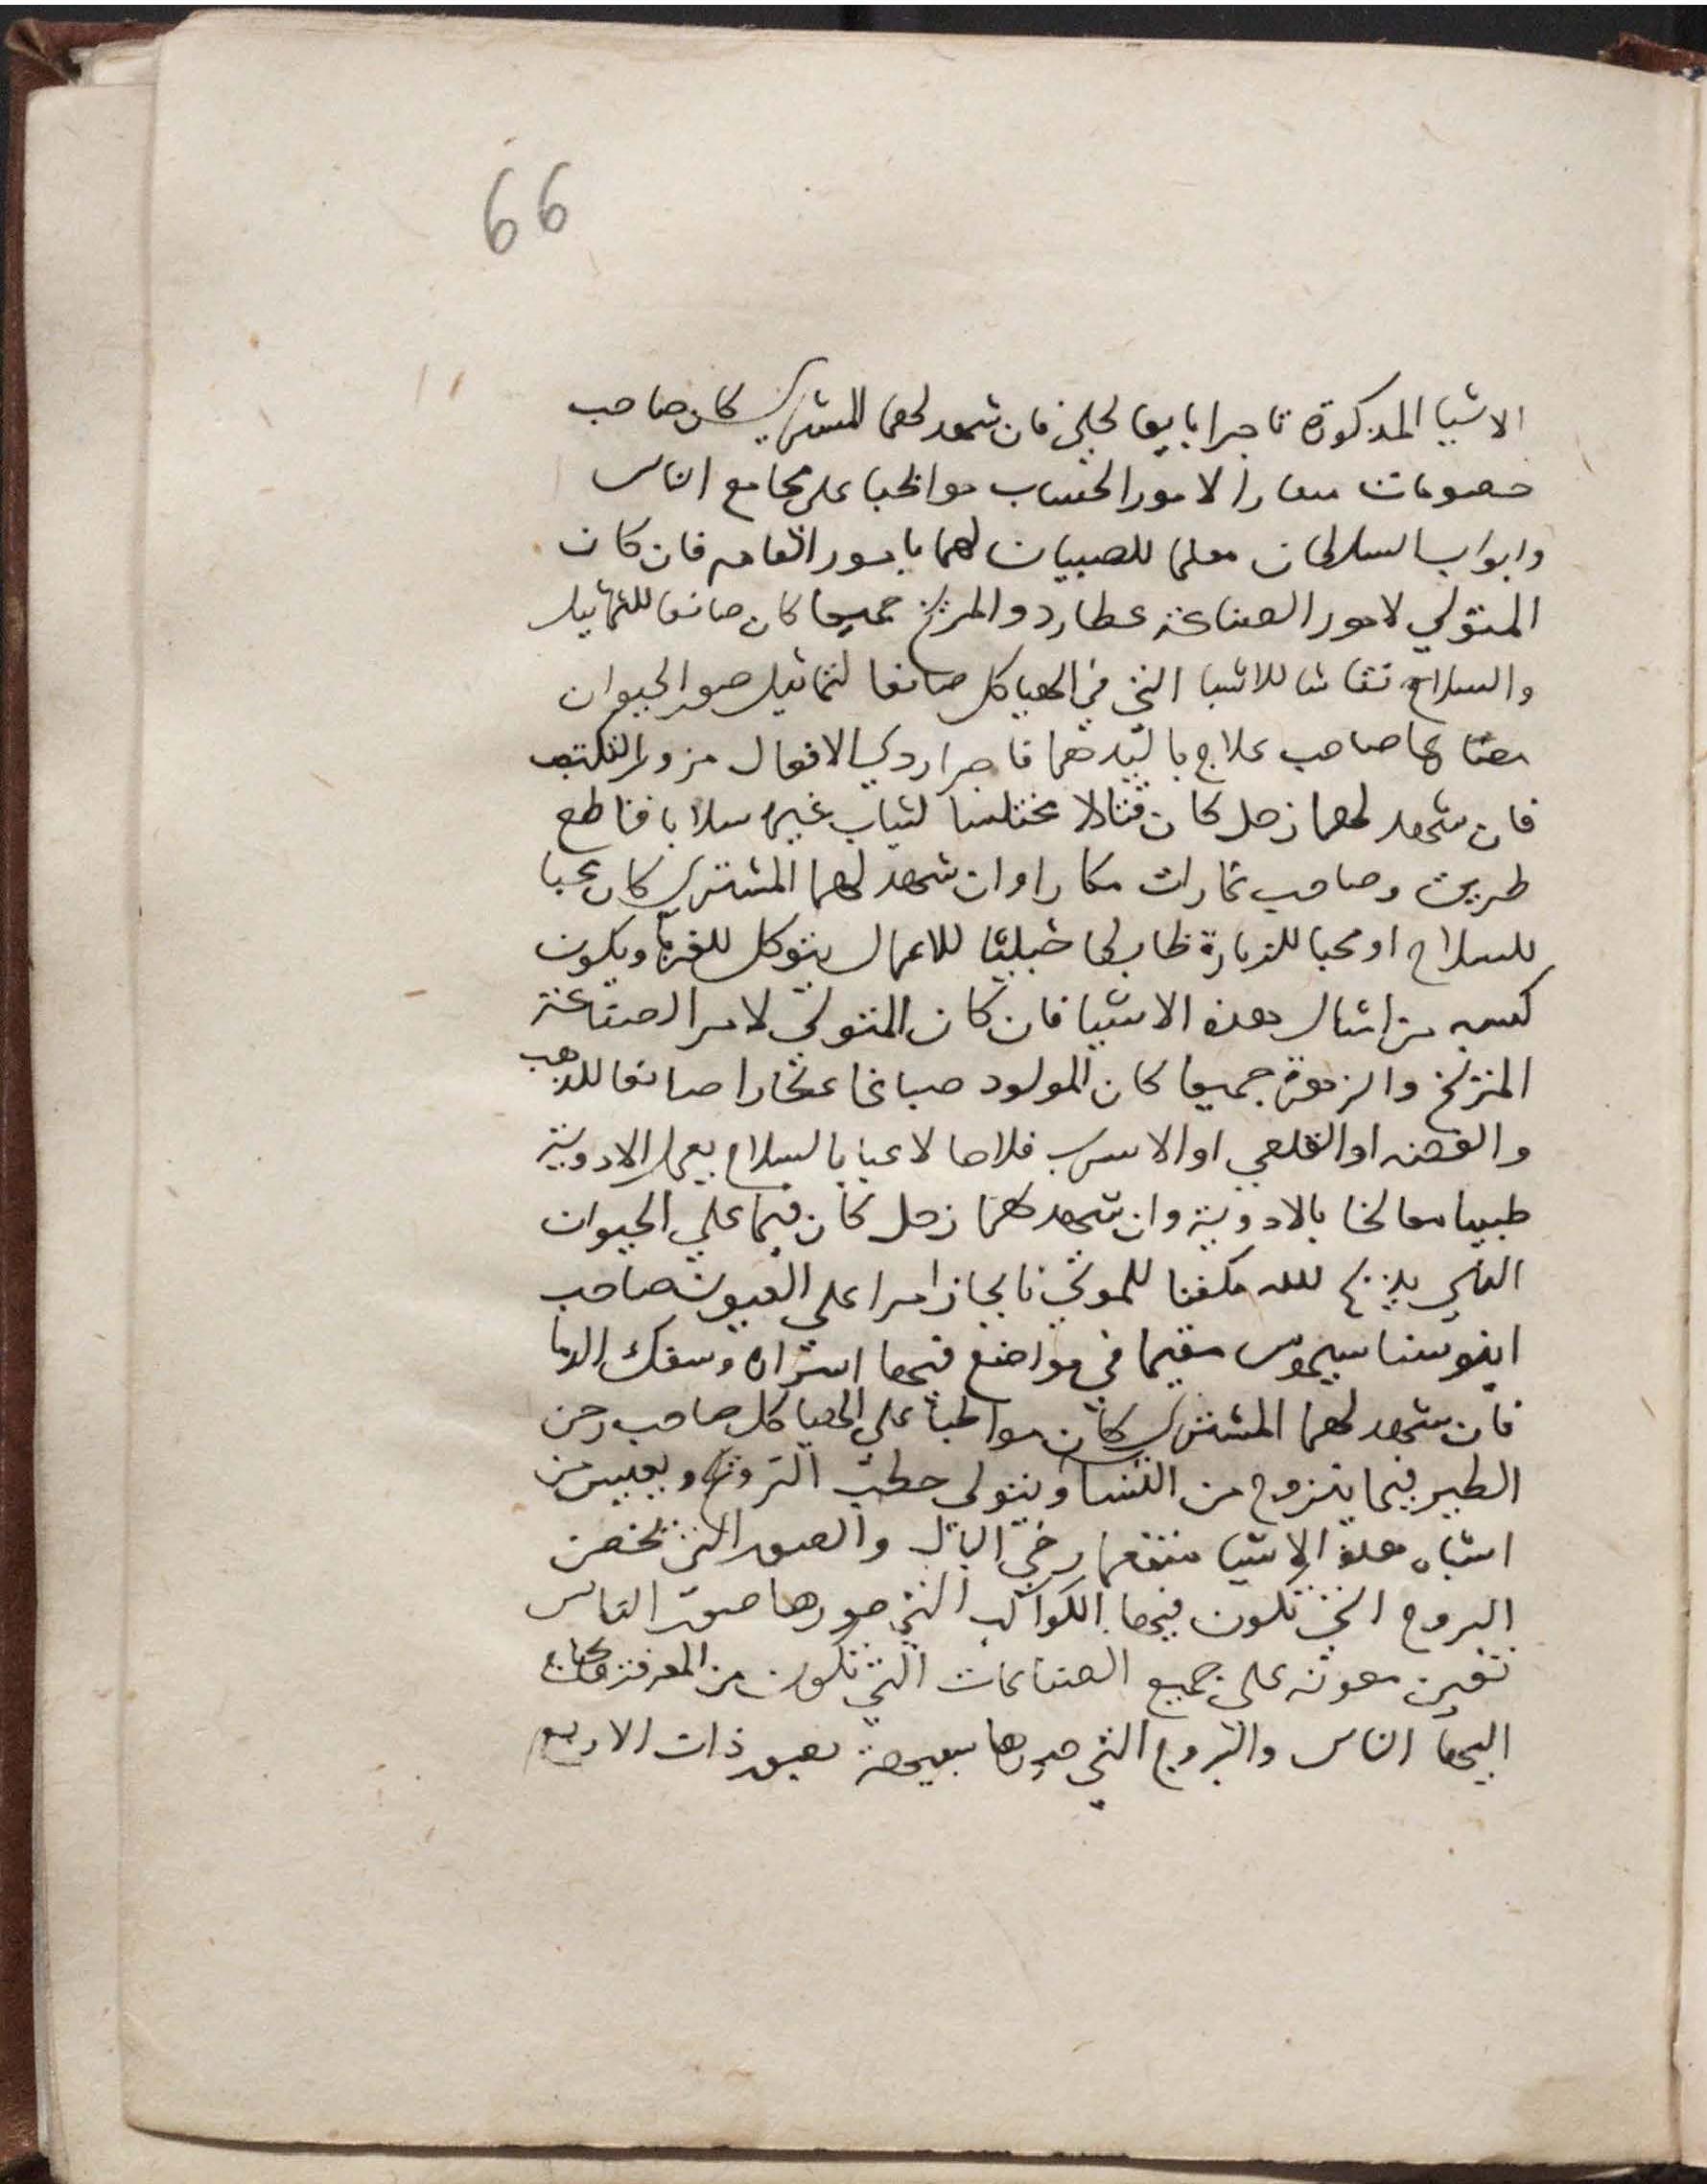 66
الاشيا المذكورة تاجرا بايعا لحلى فان شهد لهما المشتري كان صاحب
خصومات معارا لامور الحساب مواظبا على مجامع الناس
وابواب السلطان معلما للصبيان لهما بامور العامه فان كان
المتولي لامور الصناعة عطارد والمريخ جميعا كان صانعا للتماثيل
والسلاح نقاشا للاشيا التي في الهياكل صانعا لتماثيل صور الحيوان
صاحب علاج باليد فاجرا ردي الافعال مزور الكتب
فان شهد لهما زحل كان قتالا مختلسا لثياب غيره سلابا قاطع
طريق وصاحب غارات مكارا وان شهد لهما المشتري كان محبا
للسلاح او محبا للزيارة ظابطا للاعمال يتوكل للغربا ويكون
كسبه من امثال هذه الاشيا فان كان المتولي لامر الصناعة
المريخ والزهرة جميعا كان المولود صباغا عطارا صانعا للذهب
والفضه او القلعي او الاسرب فلاحا لاعبا بالسلاح يعمل الادوية
طبيبا معالجا بالادوية وان شهد لهما زحل كان قيما على الحيوان
الذي يذبح لله مكفنا للموتي زامرا على القبور صاحب
مقيما في مواضع فيها اسراه وسفك الدما
فان شهد لهما المشتري كان مواظبا على الهياكل صاحب زجر
الطير فيما يتزوج من النسا ويتولى خطب التزويج ويعيش من
اشباه هذه الاشيا متنعما رخي البال والصور التي تخص
البروج التي تكون فيها الكواكب التي صورها صور الناس
تعين معونه على جميع الصناعات التي تكون من المعرفة ويحتاج
اليها الناس والبروج التي صورها شبيهة بصور ذات الاربع